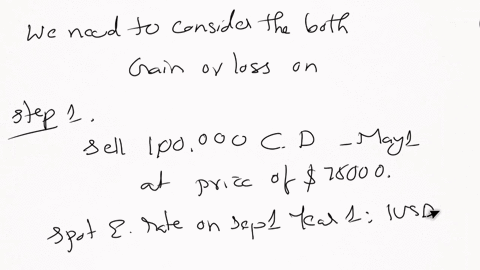 We need to consider the both
Gain or loss on
Step 1.
Sell 100.000 C.D - May1
at price of $75000.
Spot E. rate on Sep1 Year 1: 1USD